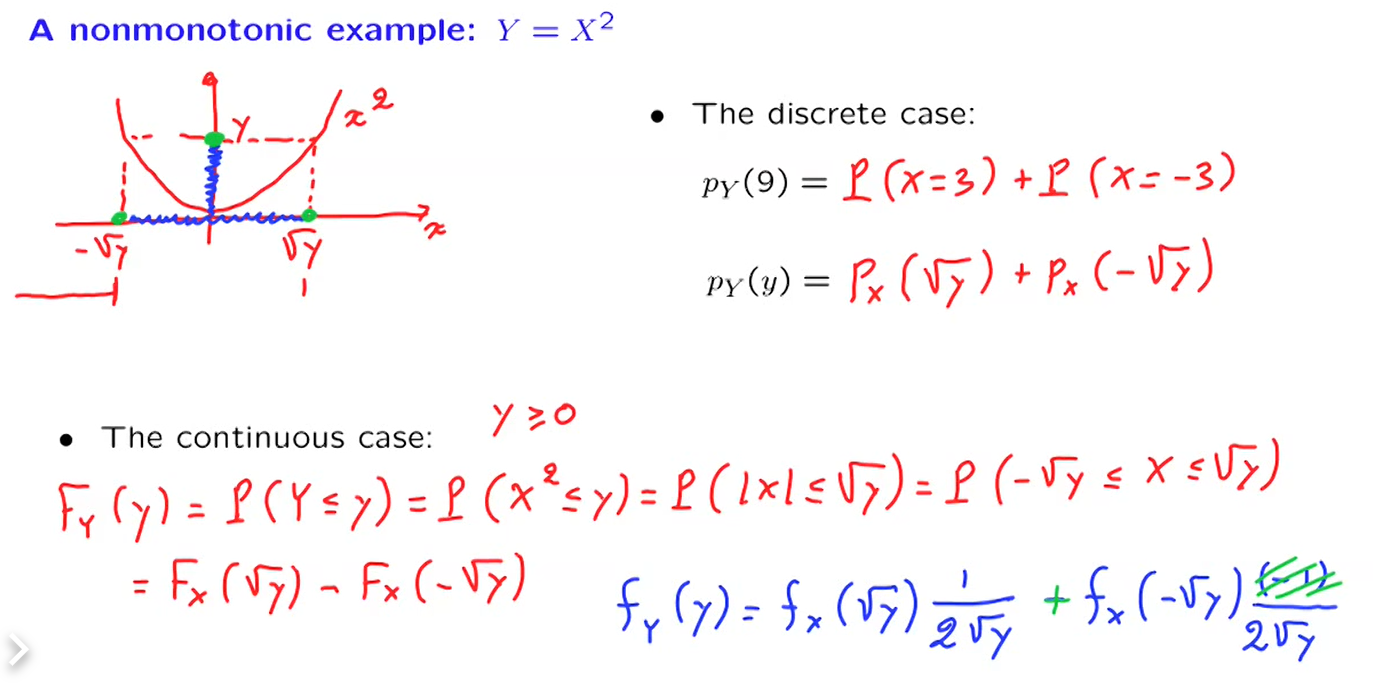 A nonmonotonic example: Y = X²
x²
y
x
-√y
√y
• The discrete case:
p_Y(9) = P(X=3) + P(X=-3)
p_Y(y) = P_X(√y) + P_X(-√y)
• The continuous case: y ≥ 0
F_Y(y) = P(Y ≤ y) = P(X² ≤ y) = P(|X| ≤ √y) = P(-√y ≤ X ≤ √y)
= F_X(√y) - F_X(-√y)
f_Y(y) = f_X(√y) 1/(2√y) + f_X(-√y) (-1)/(2√y)